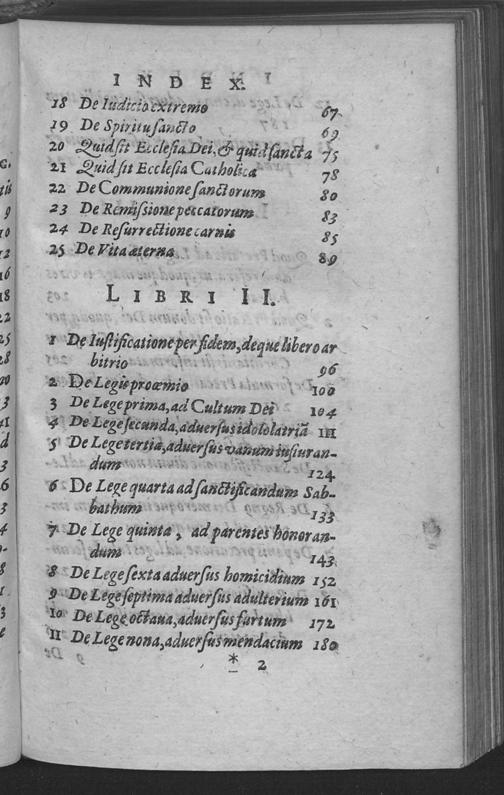 INDEX.
18 De Iudicio extremo 67
19 De Spiritu sancto 69
20 Quid sit Ecclesia Dei, & quid sancta 75
21 Quid sit Ecclesia Catholica 78
22 De Communione sanctorum 80
23 De Remissione peccatorum 83
24 De Resurrectione carnis 85
25 De Vita æterna 89
LIBRI II.
1 De Iustificatione per fidem, deque libero ar
bitrio 96
2 De Legis proœmio 100
3 De Lege prima, ad Cultum Dei 104
4 De Lege secunda, adversus idololatriã 111
5 De Lege tertia, adversus vanum iusiuran-
dum 124
6 De Lege quarta ad sanctificandum Sab-
bathum 133
7 De Lege quinta, ad parentes honoran-
dum 143
8 De Lege sexta adversus homicidium 152
9 De Lege septima adversus adulterium 161
10 De Lege octava, adversus furtum 172
11 De Lege nona, adversus mendacium 180
* 2